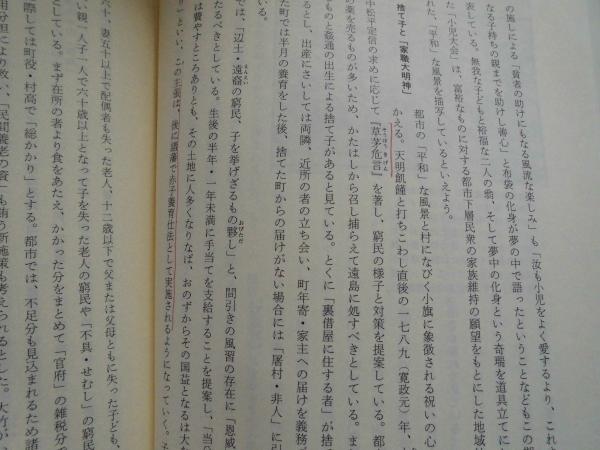 の施しによる「貧者の助けにもなる風流な楽しみ」も「汝も小児をよく愛するより、これま
なる子持ちの親までを助けし善心」と布袋の化身が夢の中で語ったということなどもこの
表している。無我な子どもと裕福な二人の翁、そして夢中の化身という奇瑞を道具立てに
た「小児大会」は、富裕なものに対する都市下層民衆の家族維持の願望をもとにした地域
れた、「平和」な風景を描写しているといえよう。
捨て子と「家職大明神」
都市の「平和」な風景と村になびく小旗に象徴される祝いの心
かえる。天明飢饉と打ちこわし直後の一七八九（寛政元）年、
中松平定信の求めに応じて『草茅危言』を著し、窮民の様子と対策を提案している。都
の薬を売るものが多いため、かたはしから召し捕らえて遠島に処すべきとしている。ま
ものと姦通の出生による捨て子があると見ている。とくに「裏借屋に住する者」が捨
るとし、出産にさいしては両隣、近所の者の立ち会い、町年寄・家主への届けを義務
た町では半月の養育をした後、捨てた町からの届けがない場合には「屠村・非人」に引
では、「辺土・遠裔の窮民、子を挙げざるもの夥し」と、間引きの風習の存在に「恩威
たるべきとしている。生後の半年・一年未満に手当てを支給することを提案し、「当
は費やすところありとも、その土地に人多くなりなば、おのずからその国益となるは大
り」といい、この主張は、後に諸藩で赤子養育仕法として実施されるようになっていく。
六十、妻五十以上で配偶者も失った老人、十二歳以下で父または父母ともに失った子ども、
い親「人子一人で六十歳以上となって子を失った老人の窮民や「不具・せむし」の窮民
としている。まず在所の者より食をあたえ、かかった分をまとめて「官府」の雑税分で
際しては町役・村高で「総かかり」とする。都市では、不足分も見込まれるため諸
用分担により救い、「民間養老の資」も賄う新施策も考えられるとした。大竹が、